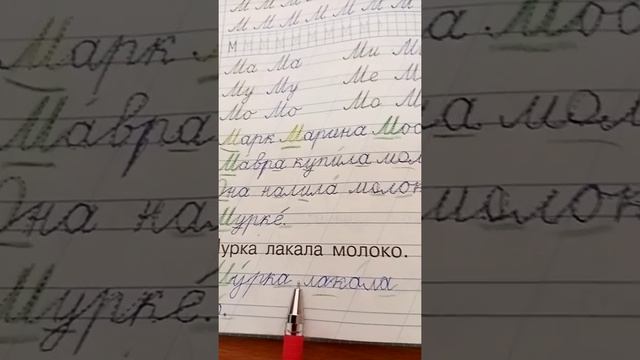 М М М М М М М
М М М М М М М
М
Ма Ма Ми
Му Му Ме
Мо Мо Мо
Марк Марина Мос
Мавра купила мол
Она налила молок
Мурке.
Мурка лакала молоко.
Мурка лакала